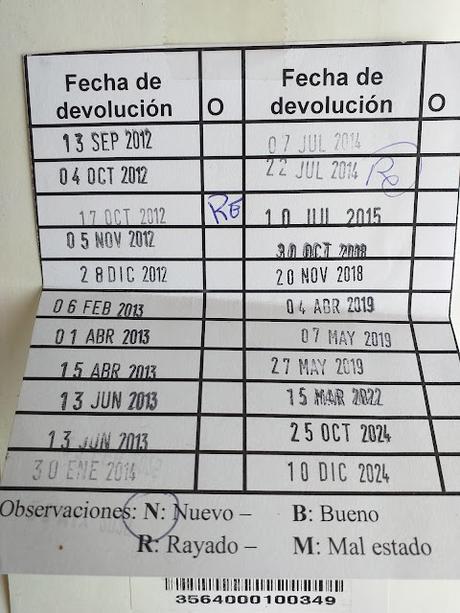 Fecha de devolución O Fecha de devolución O
13 SEP 2012 07 JUL 2014
04 OCT 2012 22 JUL 2014 Re
17 OCT 2012 RE 10 JUL 2015
05 NOV 2012 30 OCT 2018
28 DIC 2012 20 NOV 2018
06 FEB 2013 04 ABR 2019
01 ABR 2013 07 MAY 2019
15 ABR 2013 27 MAY 2019
13 JUN 2013 15 MAR 2022
13 JUN 2013 25 OCT 2024
30 ENE 2014 10 DIC 2024
Observaciones: N: Nuevo – B: Bueno
R: Rayado – M: Mal estado
3564000100349